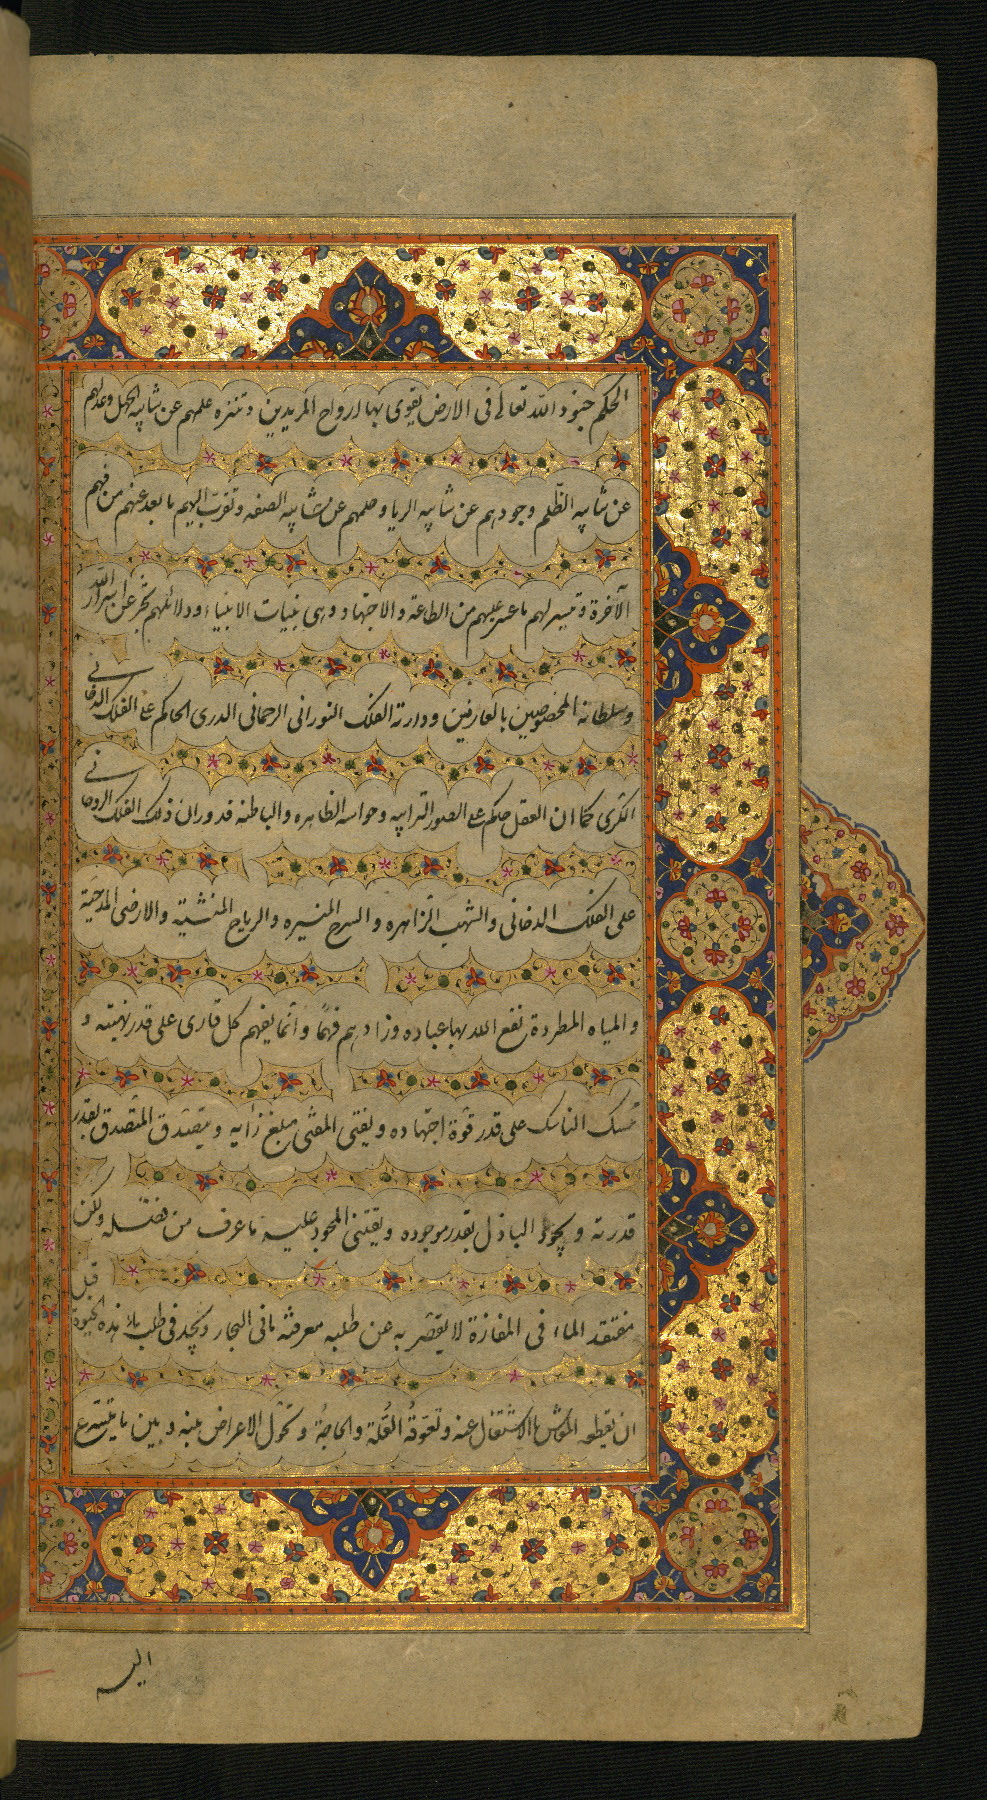 الحكم جنود الله تعالى فى الارض يقوى بها ارواح المريدين و تنزه علمهم عن شايبه الجهل و عدلهم
عن شايبه الظّلم و جودهم عن شايبه الريا و حلمهم عن شايبه الصفه و تقرّب اليهم ما بعد عنهم من فهم
الآخرة و تيسر لهم ما عسر عليهم من الطاعة و الاجتهاد و هى بنيات الانبياء و دلائلهم تخبر عن اسرار الله
و سلطانه المخصوصين بالعارفين و دارته الفلك النورانى الرحمانى الدرى الحاكم على الفلك الدخانى
الكرى كما ان العقل حاكم على الصور الترابيه و حواسه الظاهره و الباطنه فدوران ذلك الفلك الروحانى
على الفلك الدخانى و الشهب الزاهره و السرج المنيره و الرياح المنشئية و الارضى المدحية
و المياه المطردة نفع الله بها عباده و زادهم فهمًا و انما يفهم كل قارى على قدر نهيته و
نسك الناسك على قدر قوّة اجتهاده و يفتى المفتى مبلغ رايه و يتصدق المتصدق بقدر
قدرته و يجود الباذل بقدر موجوده و يقتنى المجود عليه ما عرف من فضله و لكن
مفتقد الماء فى المفازة لا يقصر به عن طلبه معرفته مافى البحار و يجد فى طلب ماء هذه الحيوة قبل
ان يقطعه المعاش بالاشتغال عنه و تعوقهُ العُلة و الحاجةُ و تحول الاعراض بينه و بين ما يتسرع
اليه